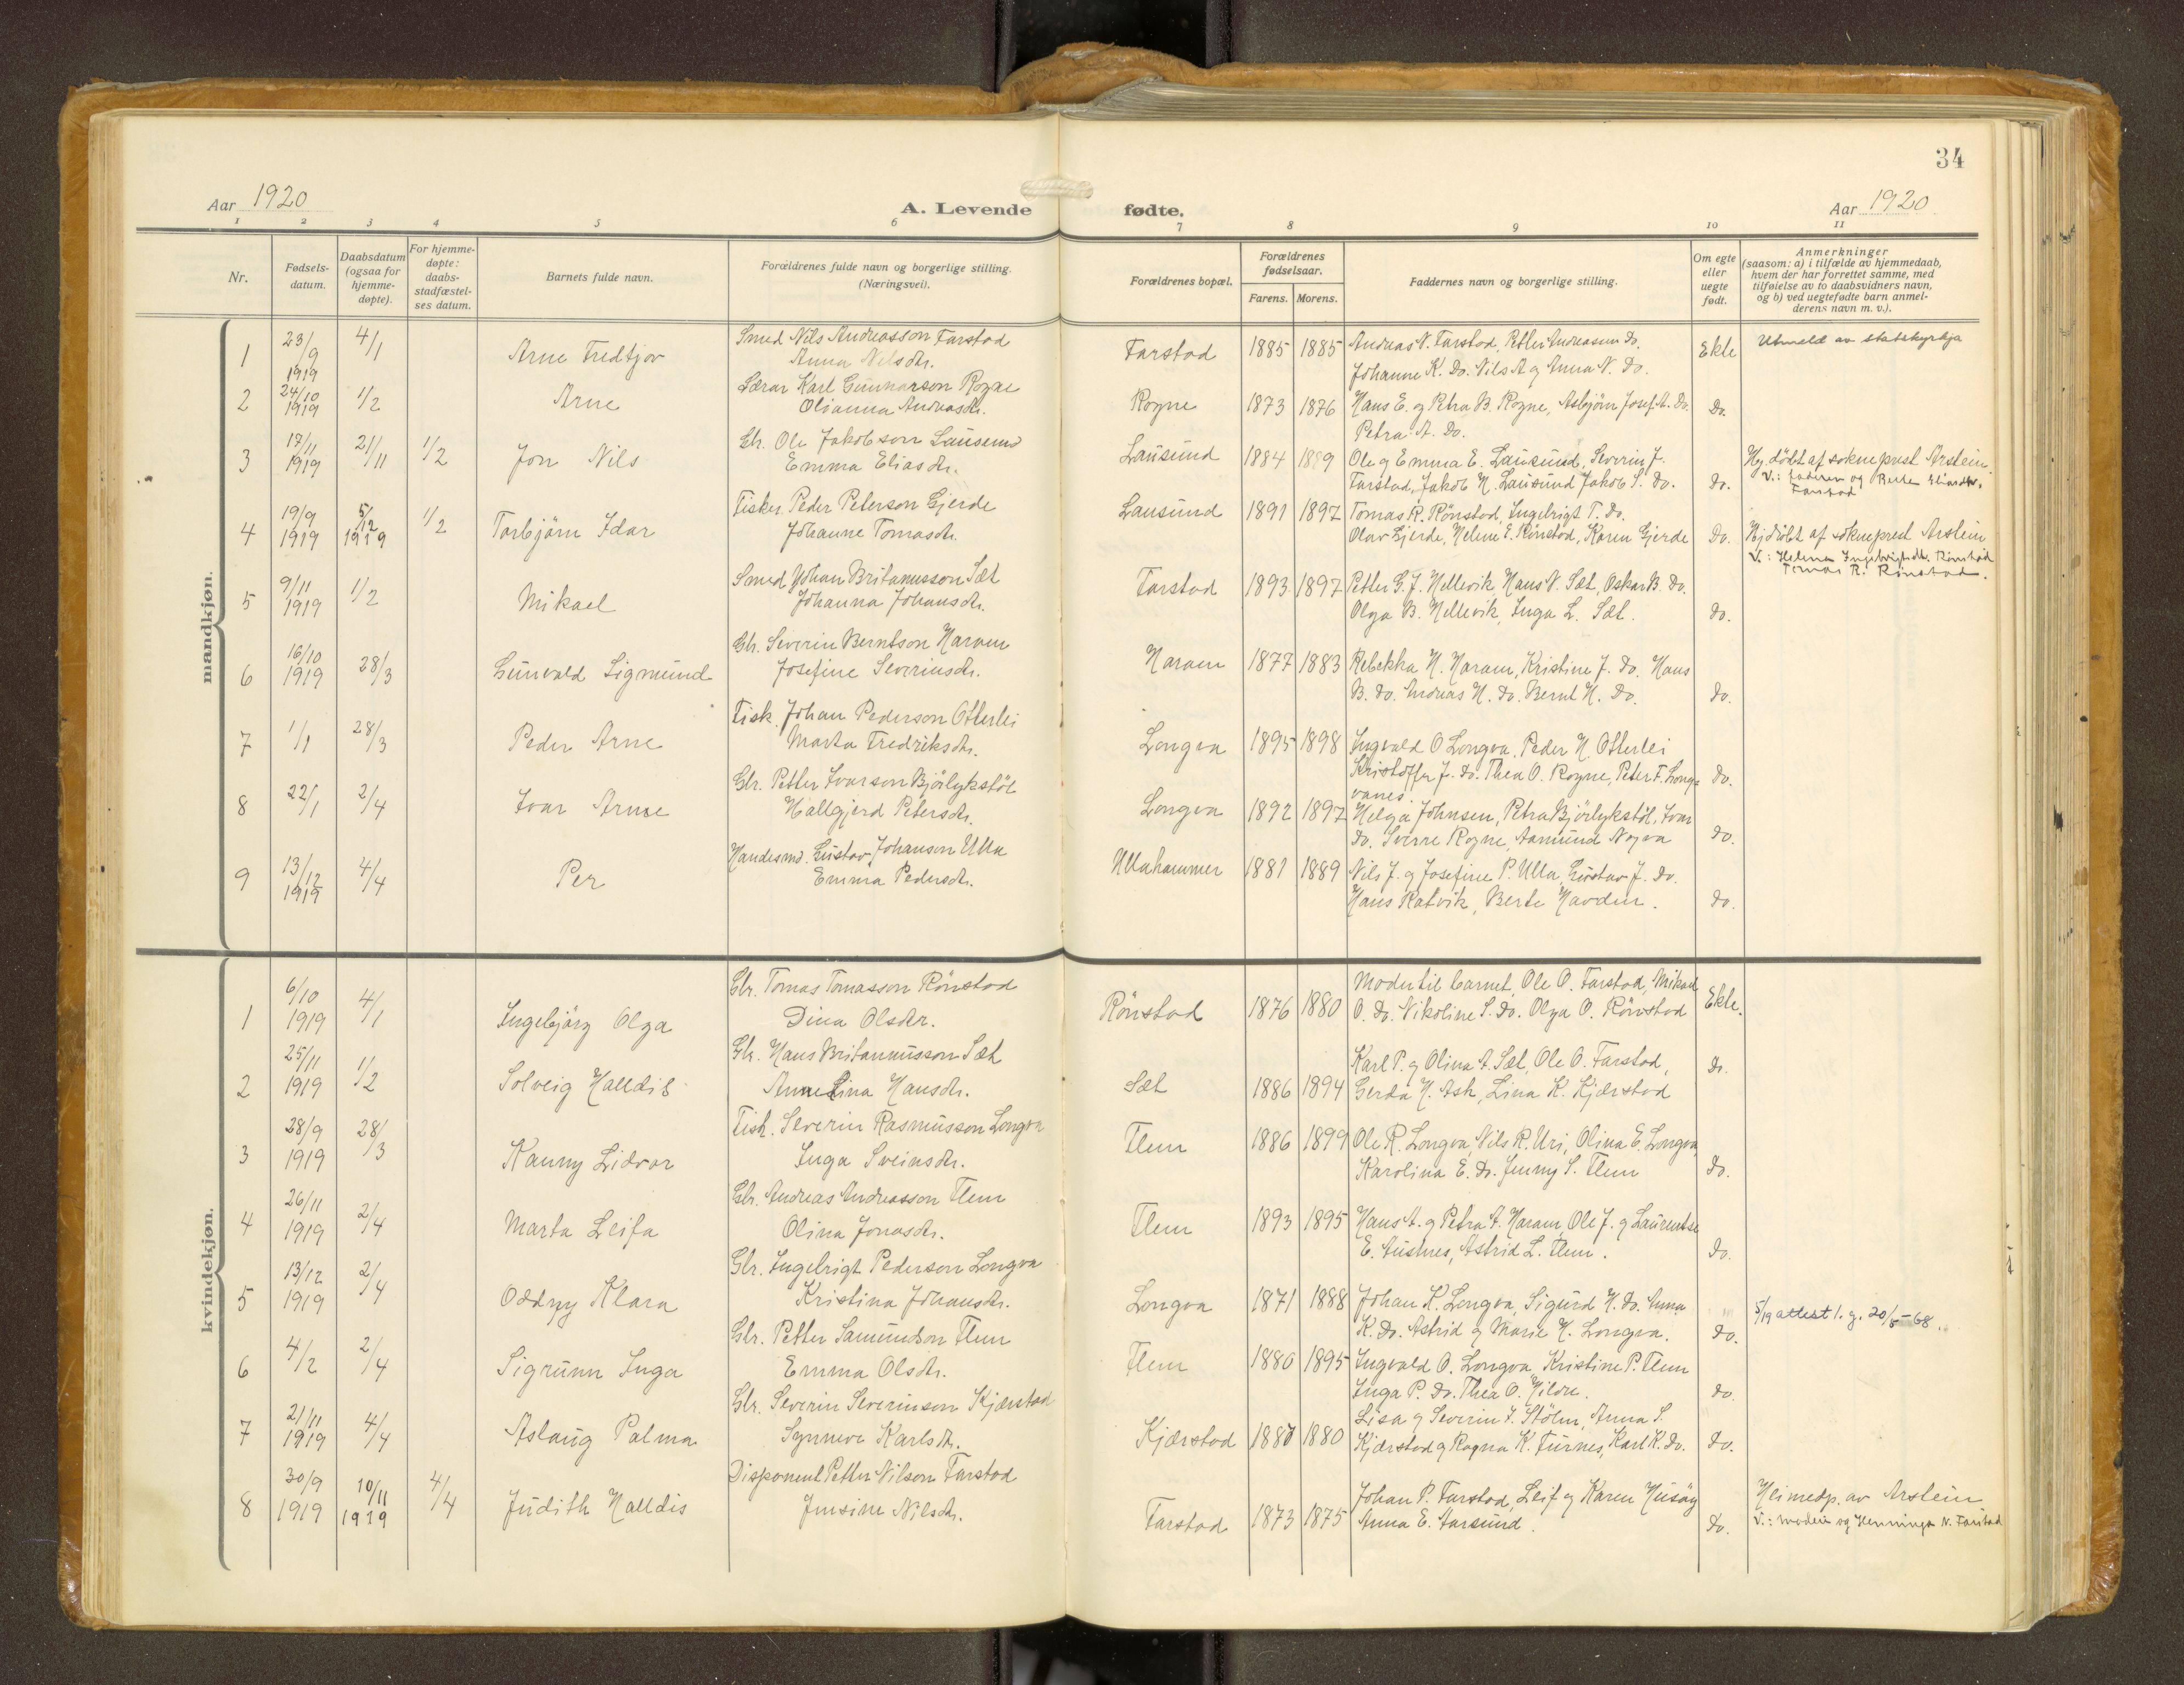 34
Aar 1920
A. Levende fødte.
Aar 1920
1 2 3 4 5 6 7 8 9 10 11
Nr.
Fødsels-
datum.
Daabsdatum
(ogsaa for
hjemme-
døpte).
For hjemme-
døpte:
daabs-
stadfæstel-
ses datum.
Barnets fulde navn.
Forældrenes fulde navn og borgerlige stilling.
(Næringsvei).
Forældrenes bopæl.
Forældrenes
fødselsaar.
Farens. Morens.
Faddernes navn og borgerlige stilling.
Om egte
eller
uegte
født.
Anmerkninger
(saasom: a) i tilfælde av hjemmedaab,
hvem der har forrettet samme, med
tilføielse av to daabsvidners navn,
og b) ved uegtefødte barn anmel-
derens navn m. v.).
mandkjøn.
1 23/9 1919 4/1 Arne Fredtjov
Smed Nils Andreasson Farstad
Anna Nilsdtr.
Farstad 1885 1885
Andreas N. Farstad, Petter Andreassen Do.
Johanne K. Do. Nils A og Anna N. Do.
Ekte
Utmeld av statskyrkja
2 24/10 1919 1/2 Arne
Lærar Karl Gunnarson Rogne
Olianna Andreasdtr.
Rogne 1873 1876
Hans E. og Petra B. Rogne, Asbjörn Josef A. Do.
Petra A. Do.
Do.
3 17/11 1919 21/11 1/2 Jon Nils
Gbr. Ole Jakobson Lausund
Emma Eliasdtr.
Lausund 1884 1889
Ole og Emma E. Lausund, Severin J.
Farstad, Jakob N. Lausund Jakob S. Do.
Do.
Hj. döbt af sokneprest Arstein.
V.: faderen og Berte Eliasdtr.
Farstad
4 19/9 1919 5/12 1919 1/2 Torbjörn Idar
Fisker Peder Peterson Gjerde
Johanne Tomasdtr.
Lausund 1891 1897
Tomas R. Rönstad, Ingebrigt T. Do.
Olav Gjerde, Helene E. Rönstad, Karen Gjerde
Do.
Hj döbt af sokneprest Arstein
V.: Helena Ingebrigtsdt. Rönstad
Tomas R. Rönstad.
5 9/11 1919 1/2 Mikael
Smed Johan Britanusson Sæt
Johanna Johansdtr.
Farstad 1893 1897
Petter G. J. Hellevik, Hans N. Sæt, Oskar B. Do.
Olga B. Hellevik, Inga L. Sæt.
Do.
6 16/10 1919 28/3 Gunvald Sigmund
Gbr. Severin Berntson Haram
Josefine Severinsdtr.
Haram 1877 1883
Rebekka H. Haram, Kristine J. Do. Hans
B. Do. Andreas H. Do. Bernt H. Do.
Do.
7 1/1 28/3 Peder Arne
Fisk. Johan Pederson Otterlei
Marta Fredriksdtr.
Longva 1895 1898
Ingvald O Longva, Peder H. Otterlei
Kristoffer J. Do. Thea O. Rogne, Peter F. Longva-
vanes.
Do.
8 22/1 2/4 Ivar Arne
Gbr. Petter Ivarson Bjørlykstöl
Hallgjerd Petersdtr.
Longva 1892 1897
Helga Johnsen, Petra Bjørlykstöl, Ivar
Do. Sverre Rogne, Aamund Nogva
Do.
9 13/12 1919 4/4 Per
Handesmd. Gustav Johanson Ulla
Emma Pedersdtr.
Ullahammer 1881 1889
Nils J. og Josefine P. Ulla, Gustav J. Do.
Hans Ratvik, Berte Havden.
Do.
kvindekjøn.
1 6/10 1919 4/1 Ingebjörg Olga
Gbr. Tomas Tomasson Rönstad
Dina Olsdtr.
Rönstad 1876 1880
Moder til barnet, Ole O. Farstad, Mikael
O. Do. Nikoline S. Do. Olga O. Rönstad
Ekte.
2 25/11 1919 1/2 Solveig Halldis
Gbr. Hans Britanusson Sæt
Anne Lina Hansdtr.
Sæt 1886 1894
Karl P. og Olina A. Sæt, Ole O. Farstad,
Gerda H. Ask, Lina K. Kjærstad
Do.
3 28/9 1919 28/3 Kanny Lidvor
Fisk. Severin Rasmusson Longva
Inga Sveinsdtr.
Flem 1886 1899
Ole R. Longva, Nils R. Uri, Olina E. Longva
Karolina E. Do. Jenny S. Flem
Do.
4 26/11 1919 2/4 Marta Leifa
Gbr. Andreas Andreasson Flem
Olina Jonasdtr.
Flem 1893 1895
Hans A. og Petra A. Haram, Ole J. og Laurentse
E. Austnes, Astrid L. Flem.
Do.
5 13/12 1919 2/4 Oddny Klara
Gbr. Ingebrigt Pederson Longva
Kristina Johansdtr.
Longva 1871 1888
Johan K. Longva, Sigurd H. Do. Anna
K. Do. Astrid og Marie H. Longva.
Do.
5/19 attest l. g. 20/5-68.
6 4/2 2/4 Sigrunn Inga
Gbr. Petter Samundson Flem
Emma Olsdtr.
Flem 1880 1895
Ingvald O. Longva Kristine P. Flem
Inga P. Do. Thea O. Hildre.
Do.
7 21/11 1919 4/4 Aslaug Palma
Gbr. Severin Severinson Kjærstad
Synneve Karlsdtr.
Kjærstad 1880 1880
Lisa og Severin I. Stölen, Anna S.
Kjærstad og Ragna K. Furnes, Karl K. Do.
Do.
8 30/9 1919 10/11 1919 4/4 Judith Halldis
Disponent Petter Nilson Farstad
Jensine Nilsdtr.
Farstad 1873 1875
Johan P. Farstad, Leif og Karen Husöy
Anna E. Aarsund.
Do.
Heimedp. av Arstein
V.: moderen og Henninga N. Farstad